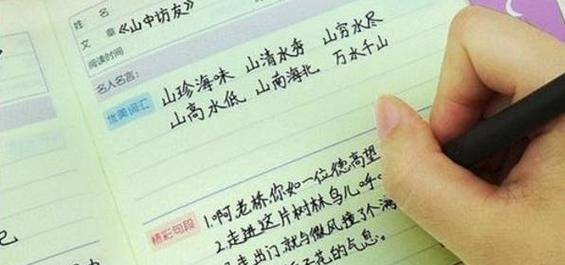 姓名
文章《山中访友》
阅读时间
名人名言：
优美词汇 山珍海味 山清水秀 山穷水尽
山高水低 山南海北 万水千山
精彩句段 1.啊老桥,你如一位德高望
2.走进这片树林,鸟儿呼
走出门,就与微风撞了个满
花的气息。